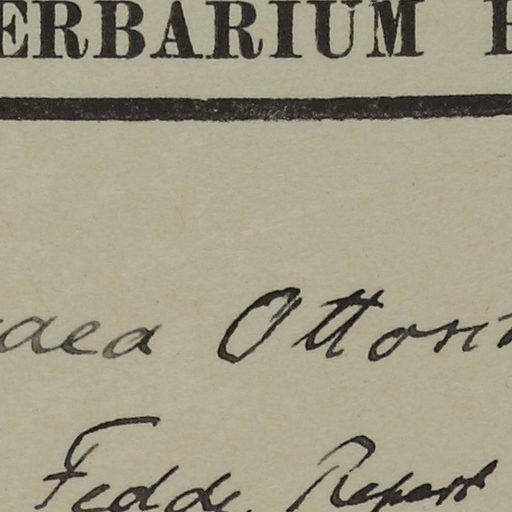 ERBARIUM
aea Ottoni
Fedde Repert